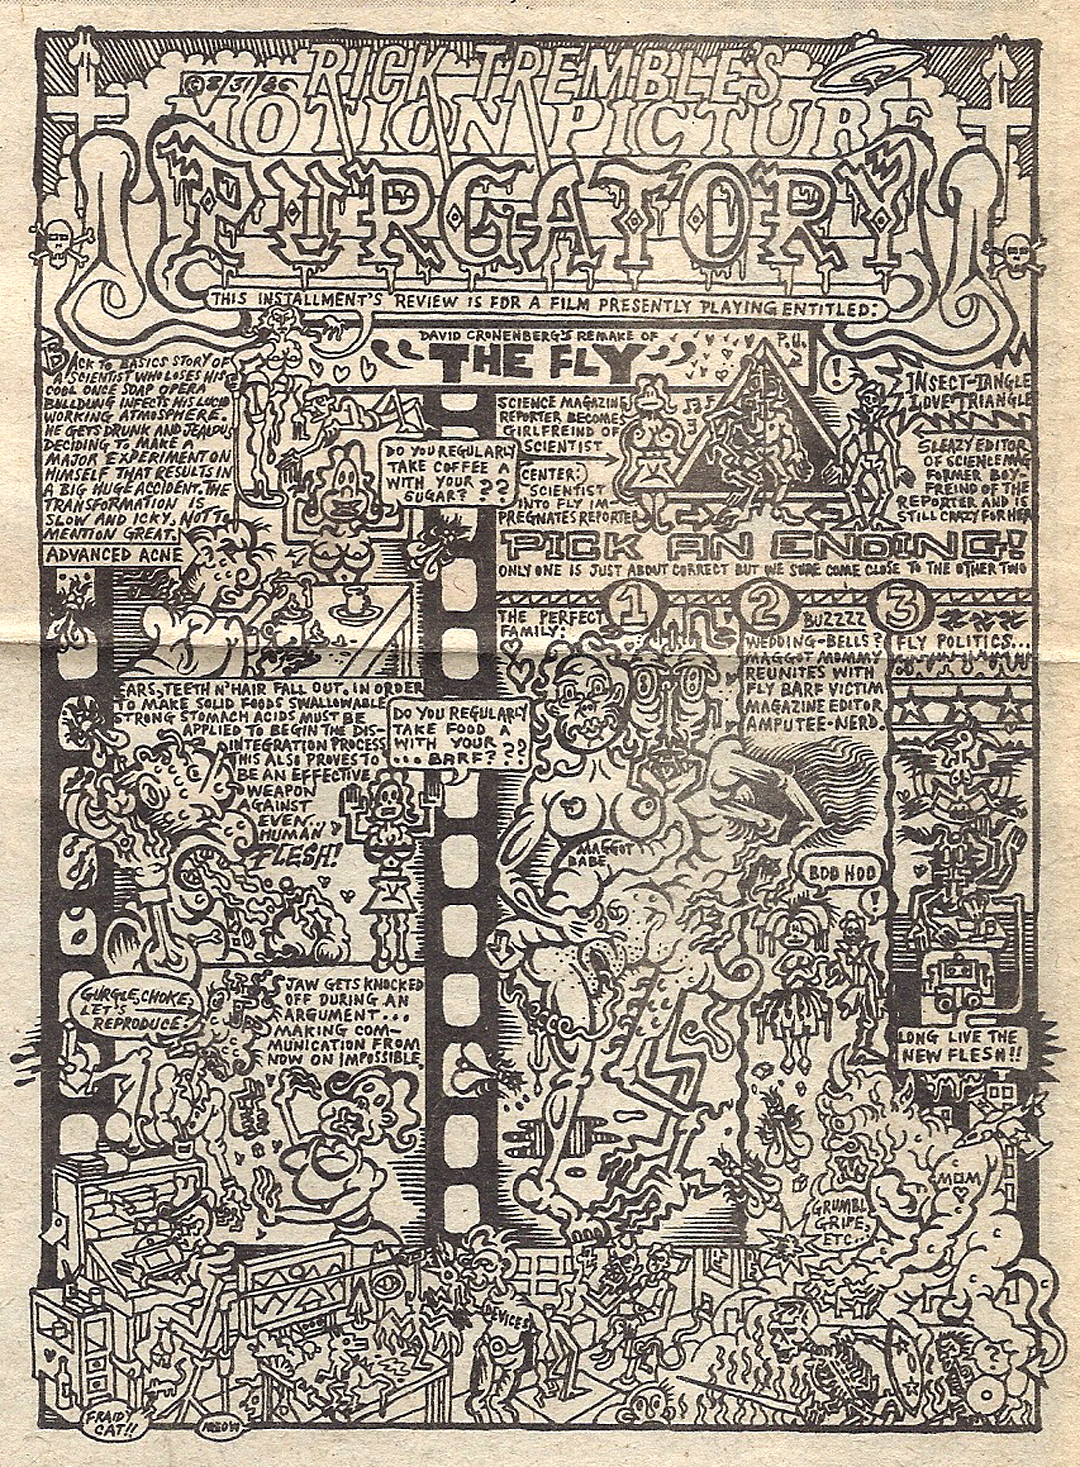 RICK TREMBLE'S
©8/31/86
MOTION PICTURE
PURGATORY
THIS INSTALLMENT'S REVIEW IS FOR A FILM PRESENTLY PLAYING ENTITLED:
DAVID CRONENBERG'S REMAKE OF
"THE FLY"
P.U.
!
BACK TO BASICS STORY OF
A SCIENTIST WHO LOSES HIS
COOL ONCE SOAP OPERA
BUILDING INFECTS HIS LUCID
WORKING ATMOSPHERE.
HE GETS DRUNK AND JEALOUS
DECIDING TO MAKE A
MAJOR EXPERIMENT ON
HIMSELF THAT RESULTS IN
A BIG HUGE ACCIDENT. THE
TRANSFORMATION IS
SLOW AND ICKY, NOT TO
MENTION GREAT.
ADVANCED ACNE
DO YOU REGULARLY
TAKE COFFEE A
WITH YOUR
SUGAR? ??
SCIENCE MAGAZINE
REPORTER BECOMES
GIRLFREIND OF
SCIENTIST
CENTER:
SCIENTIST
INTO FLY IM-
PREGNATES REPORTER
INSECT-TANGLE
LOVE TRIANGLE
SLEAZY EDITOR
OF SCIENCE MAG
FORMER BOY-
FREIND OF THE
REPORTER AND IS
STILL CRAZY FOR HER
PICK AN ENDING!
ONLY ONE IS JUST ABOUT CORRECT BUT WE SURE COME CLOSE TO THE OTHER TWO
EARS, TEETH N' HAIR FALL OUT. IN ORDER
TO MAKE SOLID FOODS SWALLOWABLE
STRONG STOMACH ACIDS MUST BE
APPLIED TO BEGIN THE DIS-
INTEGRATION PROCESS
THIS ALSO PROVES TO
BE AN EFFECTIVE
WEAPON
AGAINST
EVEN...
HUMAN
FLESH!
DO YOU REGULARLY
TAKE FOOD A
WITH YOUR
... BARF? ??
GURGLE, CHOKE,
LET'S
REPRODUCE.
JAW GETS KNOCKED
OFF DURING AN
ARGUMENT...
MAKING COM-
MUNICATION FROM
NOW ON IMPOSSIBLE
THE PERFECT
FAMILY:
1
MAGGOT
BABE
2
BUZZZZ
WEDDING-BELLS?
MAGGOT MOMMY
REUNITES WITH
FLY BARF VICTIM
MAGAZINE EDITOR
AMPUTEE-NERD.
BOO HOO
!
3
FLY POLITICS...
LONG LIVE THE
NEW FLESH!!
MOM
GRUMBL
GRIPE,
ETC...
DEVICES
FRAIDY
CAT!!
MEOW